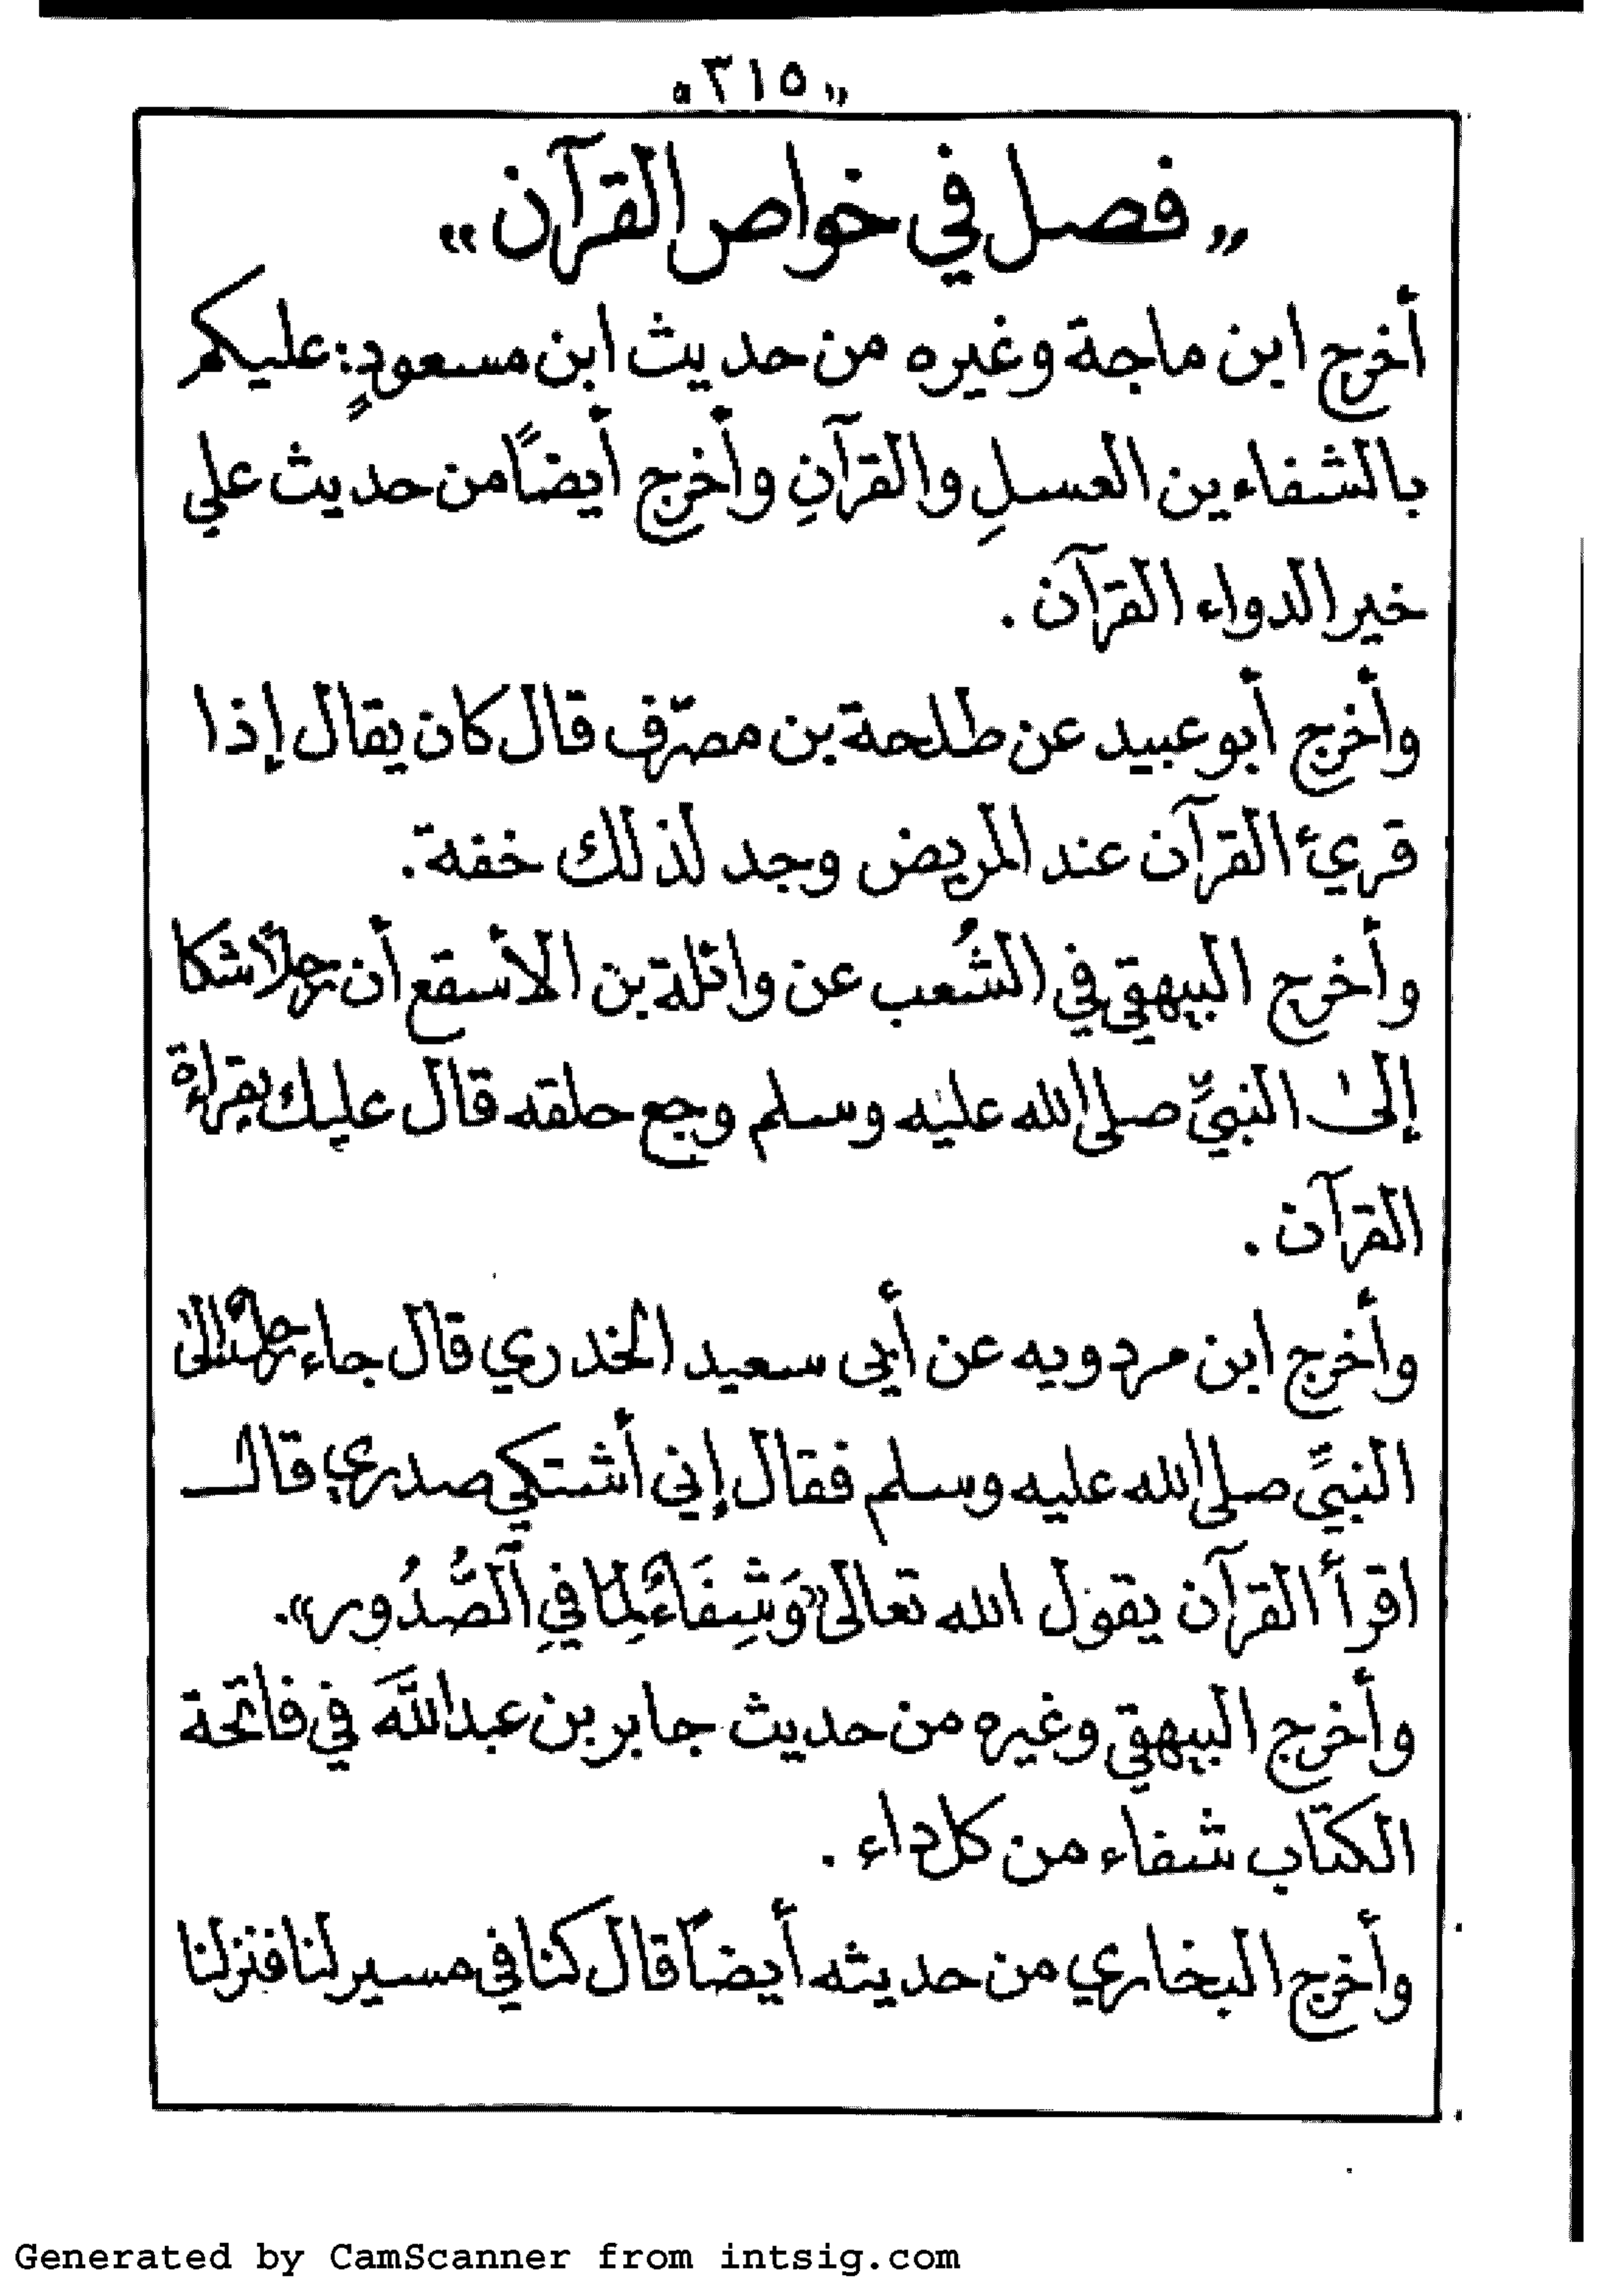 «٣١٥»
«فصل في خواص القرآن»
أخرج ابن ماجة وغيره من حديث ابن مسعودٍ: عليكم
بالشفاءين العسلِ والقرآنِ وأخرج أيضاً من حديث علي
خير الدواء القرآن .
وأخرج أبو عبيد عن طلحة بن مصرّف قال كان يقال إذا
قريئ القرآن عند المريض وجد لذلك خفة .
وأخرج البيهقي في الشُعب عن واثلة بن الأسقع أن رجلاً شكا
إلى النبيّ صلى الله عليه وسلم وجع حلقه قال عليك بقراءة
القرآن .
وأخرج ابن مردويه عن أبي سعيد الخدري قال جاء رجل إلى
النبيّ صلى الله عليه وسلم فقال إني أشتكي صدري قال
اقرأ القرآن يقول الله تعالى «وَشِفَاءٌ لِمَا فِي الصُّدُور».
وأخرج البيهقي وغيره من حديث جابر بن عبد اللَّه في فاتحة
الكتاب شفاء من كل داء .
وأخرج البخاري من حديثه أيضاً قال كنا في مسير لنا فنزلنا
Generated by CamScanner from intsig.com